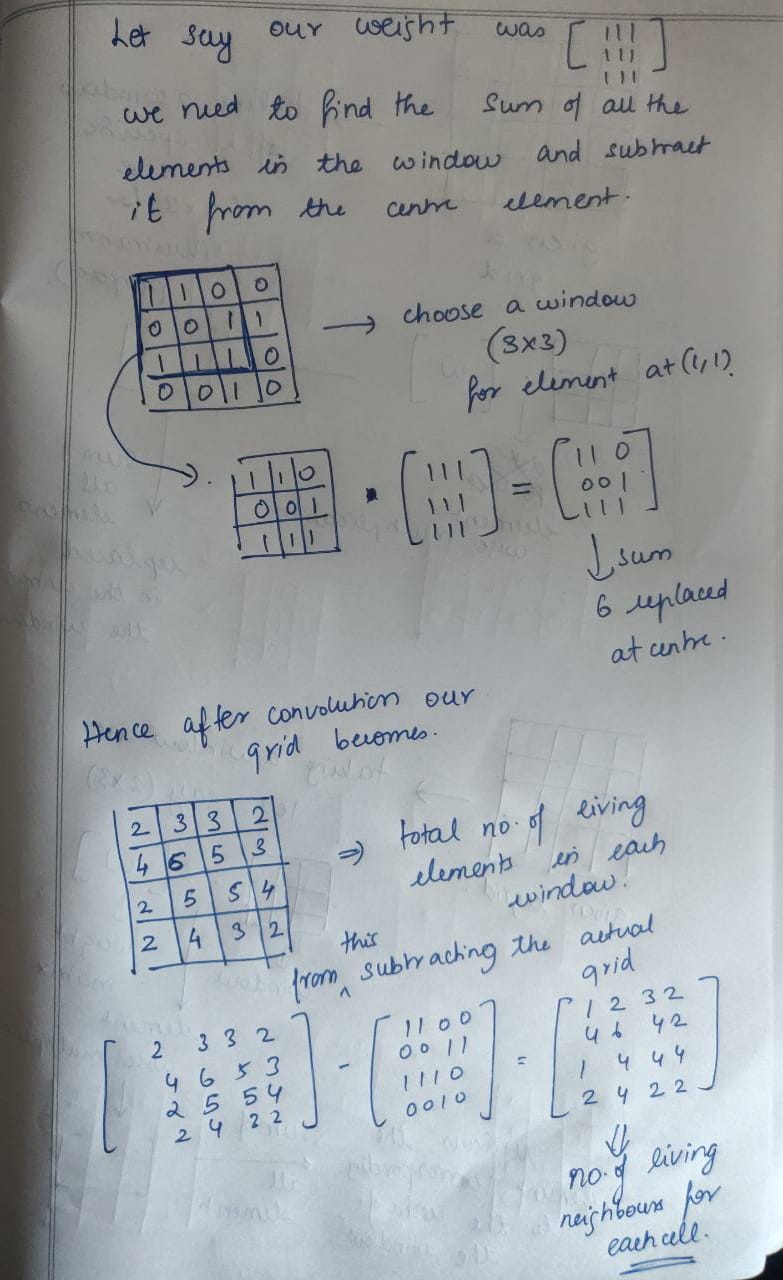 Let say our weight was [ 1 1 1
1 1 1
1 1 1 ]
we need to find the sum of all the
elements in the window and subtract
it from the centre element.
1 1 0 0
0 0 1 1
1 1 1 0
0 0 1 0
→ choose a window
(3×3)
for element at (1,1).
1 1 0
0 0 1
1 1 1
· [ 1 1 1
1 1 1
1 1 1 ]
= [ 1 1 0
0 0 1
1 1 1 ]
↓ sum
6 replaced
at centre.
Hence after convolution our
grid becomes.
2 3 3 2
4 6 5 3
2 5 5 4
2 4 3 2
⇒ total no. of living
elements in each
window.
from this subtracting the actual
grid
[ 2 3 3 2
4 6 5 3
2 5 5 4
2 4 2 2 ]
- [ 1 1 0 0
0 0 1 1
1 1 1 0
0 0 1 0 ]
= [ 1 2 3 2
4 6 4 2
1 4 4 4
2 4 2 2 ]
⇓
no. of living
neighbours for
each cell.